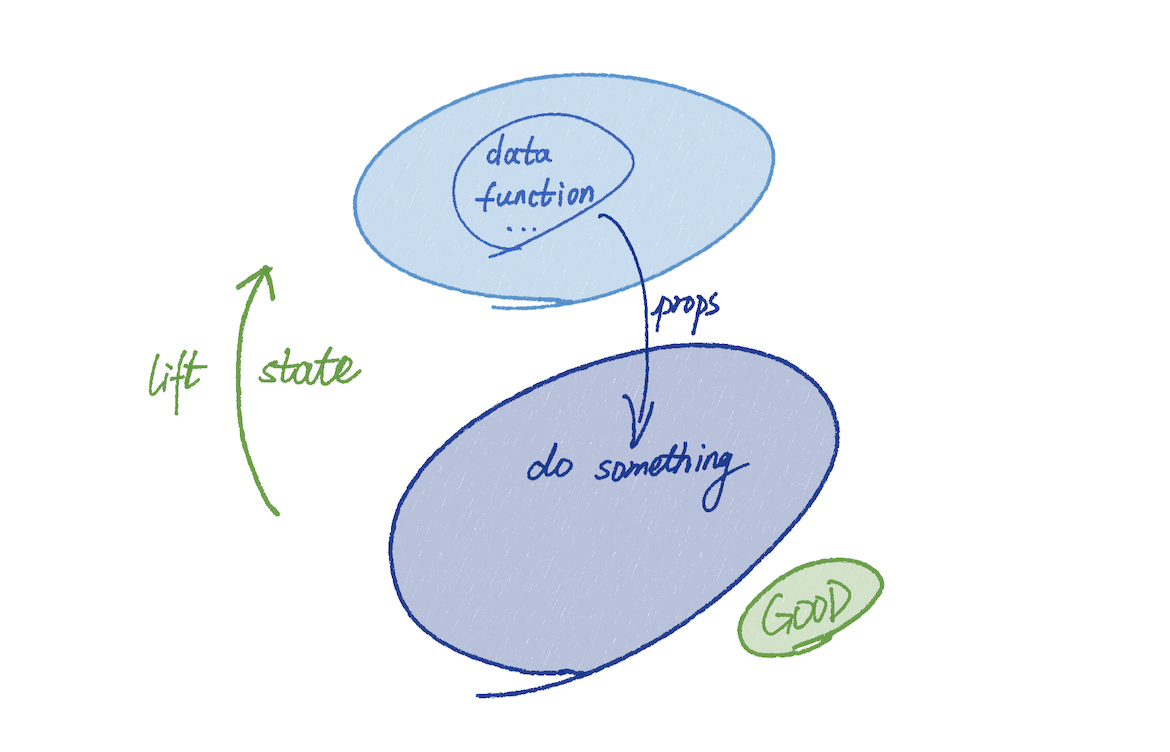 data
function
...
props
lift state
do something
GOOD